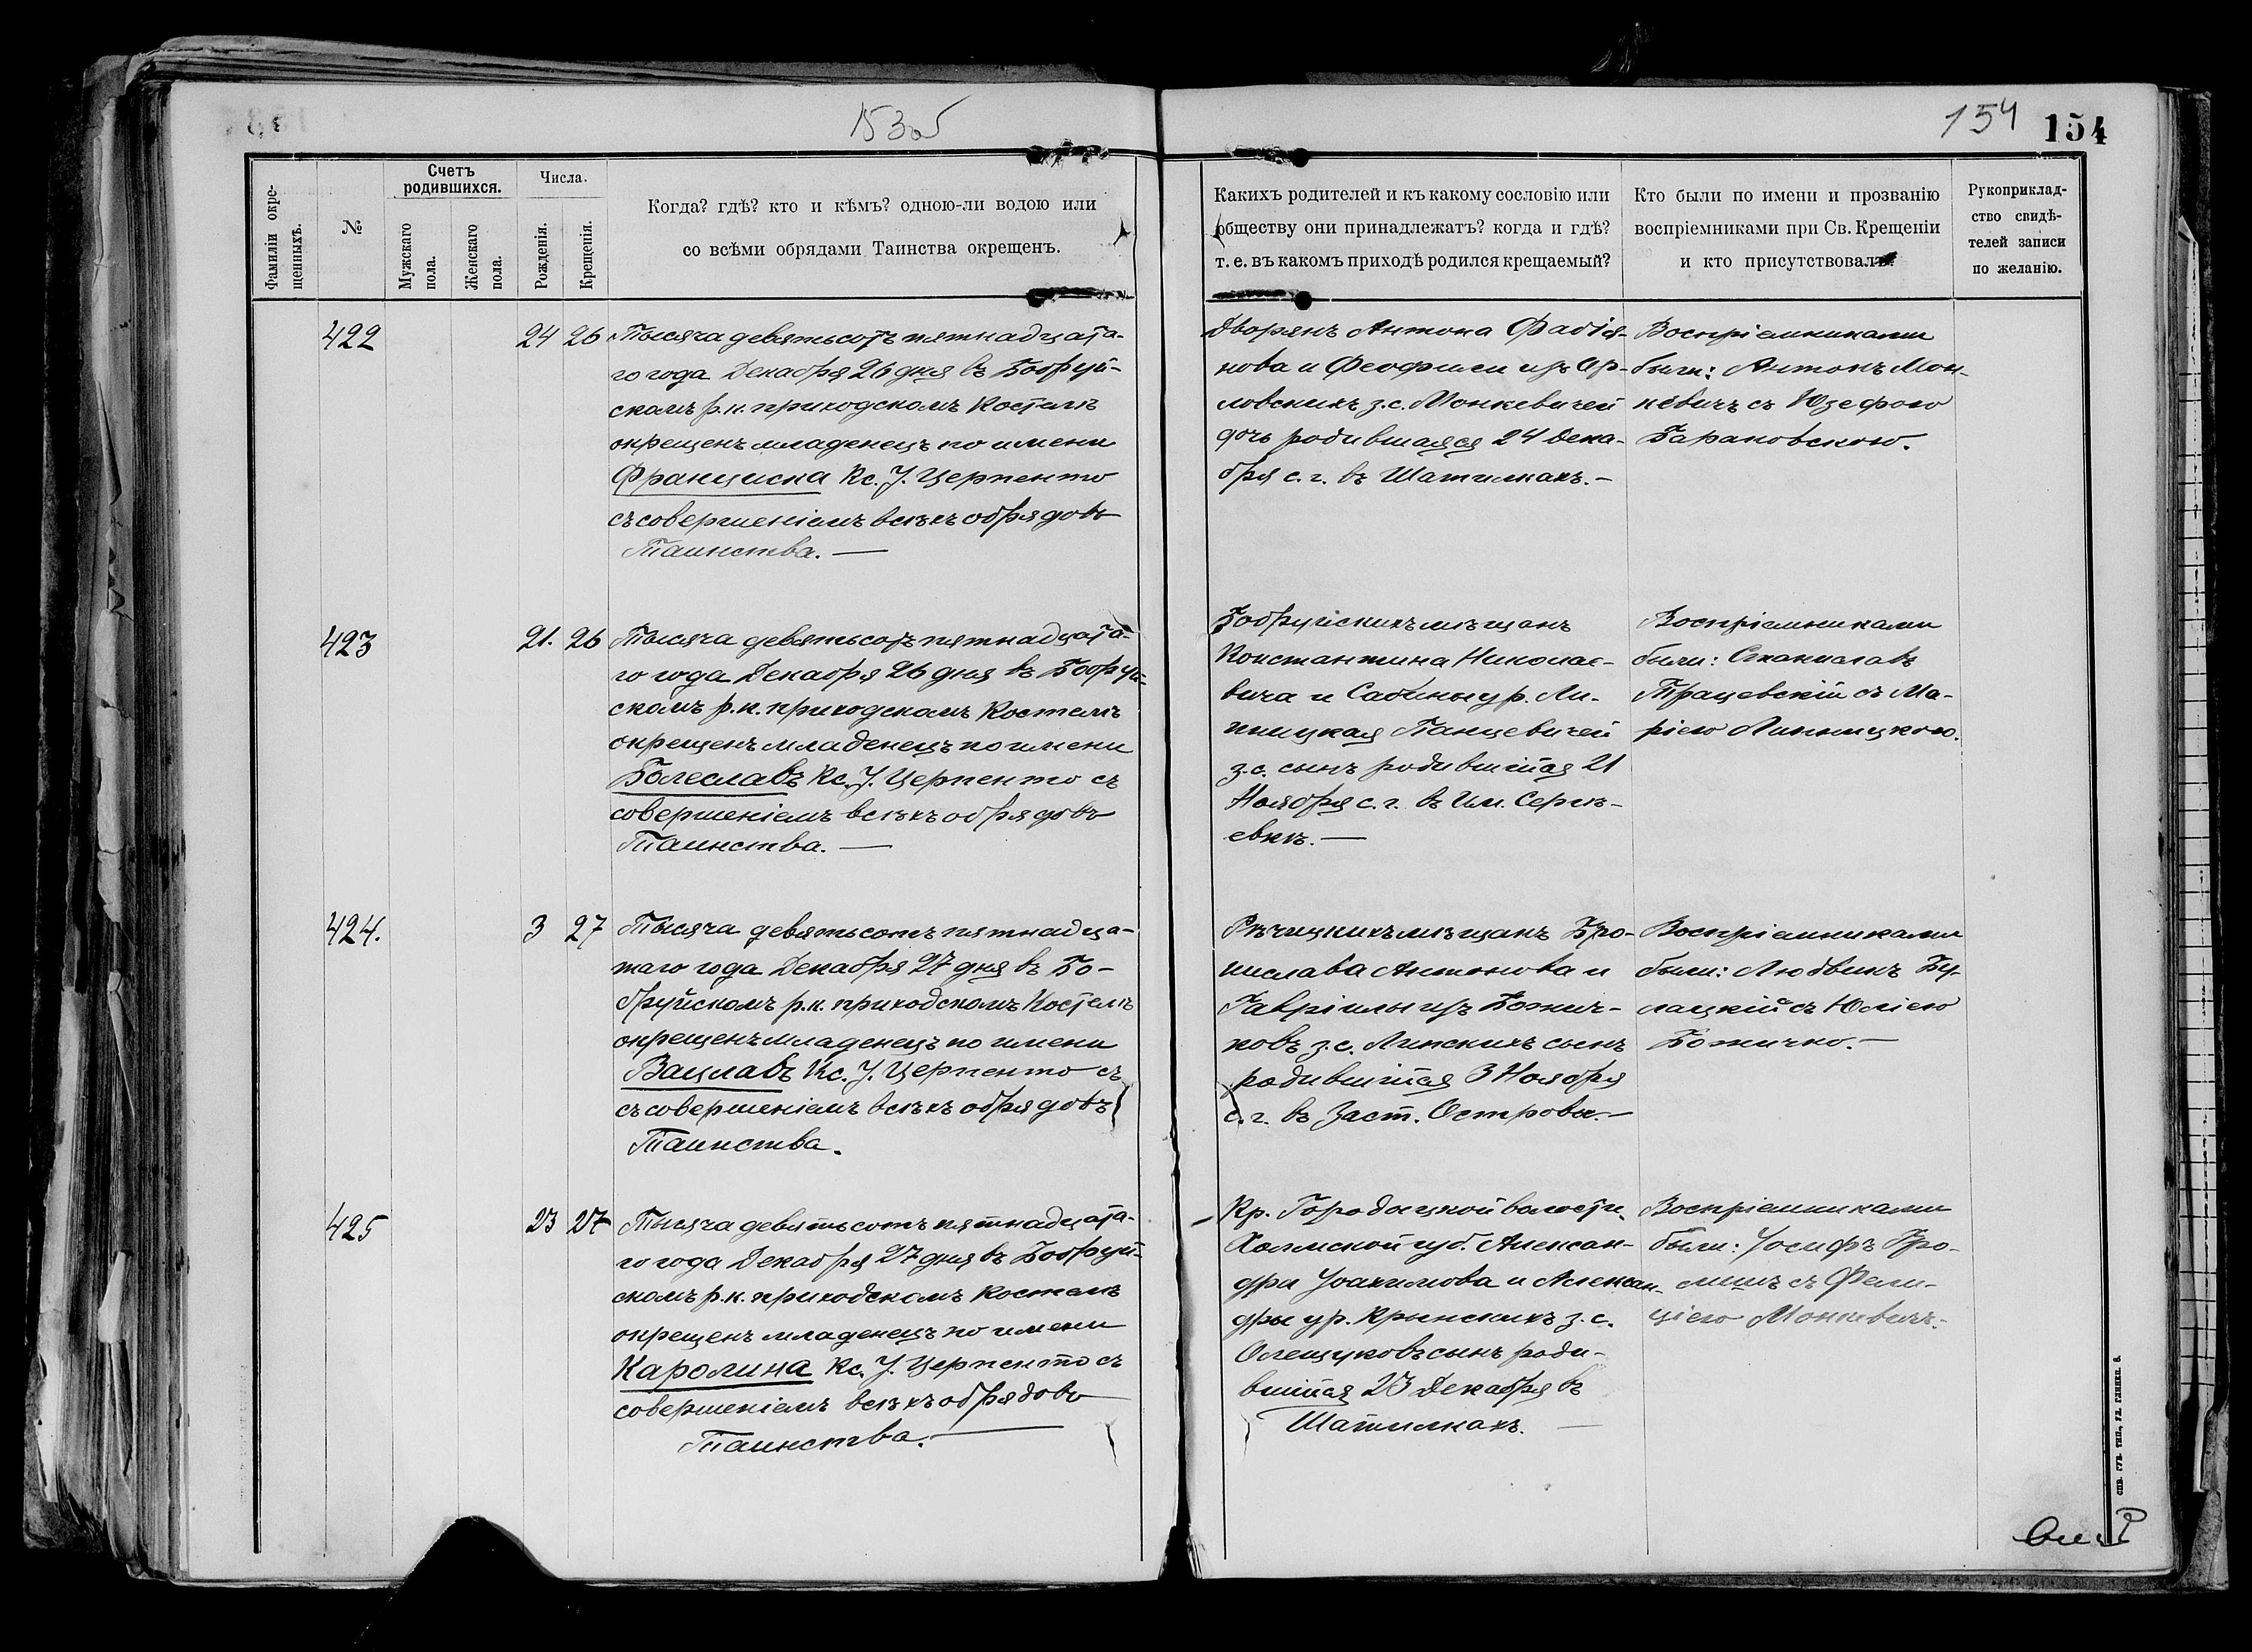 153об
154
154
Фамиліи окрещенныхъ.
№
Счетъ родившихся.
Мужскаго пола.
Женскаго пола.
Числа.
Рожденія.
Крещенія.
Когда? гдѣ? кто и кѣмъ? одною-ли водою или
со всѣми обрядами Таинства окрещенъ.
Какихъ родителей и къ какому сословію или
обществу они принадлежатъ? когда и гдѣ?
т. е. въ какомъ приходѣ родился крещаемый?
Кто были по имени и прозванію
воспріемниками при Св. Крещеніи
и кто присутствовалъ?
Рукоприклад-
ство свидѣ-
телей записи
по желанію.
422
24 26
Тысяча девятьсотъ пятнадцата-
го года Декабря 26 дня въ Бобруй-
скомъ р.к. приходскомъ Костелѣ
окрещенъ младенецъ по имени
Франциска Кс. J. Церпенто
съ совершеніемъ всѣхъ обрядовъ
Таинства. —
Дворянъ Антона Фабія-
нова и Феофили изъ Ор-
ловскихъ з.с. Монкевичей
дочь родившаяся 24 Дека-
бря с. г. въ Шатилкахъ. —
Воспріемниками
были: Антонъ Мон-
кевичъ съ Юзефою
Барановскою.
423
21. 26
Тысяча девятьсотъ пятнадцата-
го года Декабря 26 дня въ Бобруй-
скомъ р.к. приходскомъ Костелѣ
окрещенъ младенецъ по имени
Болеславъ Кс. J. Церпенто съ
совершеніемъ всѣхъ обрядовъ
Таинства. —
Бобруйскихъ мѣщанъ
Константина Николае-
вича и Сабины ур. Ли-
пницкая Ганцевичей
з.с. сынъ родившійся 21
Ноября с. г. въ Им. Сергѣ-
евкѣ. —
Воспріемниками
были: Станиславъ
Трацевскій съ Ма-
ріею Липницкою.
424.
3 27
Тысяча девятьсотъ пятнадца-
таго года Декабря 27 дня въ Бо-
бруйскомъ р.к. приходскомъ Костелѣ
окрещенъ младенецъ по имени
Вацлавъ Кс. J. Церпенто съ
съ совершеніемъ всѣхъ обрядовъ
Таинства.
Рѣчицкихъ мѣщанъ Бро-
нислава Антонова и
Гавріилы изъ Божич-
ковъ з.с. Липскихъ сынъ
родившійся 3 Ноября
с. г. въ Заст. Островы. —
Воспріемниками
были: Людвикъ Бу-
лацкій съ Юліею
Божичко. —
425
23 27
Тысяча девятьсотъ пятнадцата-
го года Декабря 27 дня въ Бобруй-
скомъ р.к. приходскомъ Костелѣ
окрещенъ младенецъ по имени
Каролина Кс. J. Церпенто съ
совершеніемъ всѣхъ обрядовъ
Таинства. —
Кр. Городыцкой волости,
Холмской губ. Алексан-
дра Іоахимова и Алексан-
дры ур. Крынскихъ з.с.
Олещуковъ сынъ роди-
вшійся 23 Декабря въ
Шатилкахъ. —
Воспріемниками
были: Іосифъ Гро-
лишъ съ Фели-
ціею Монкевичъ.